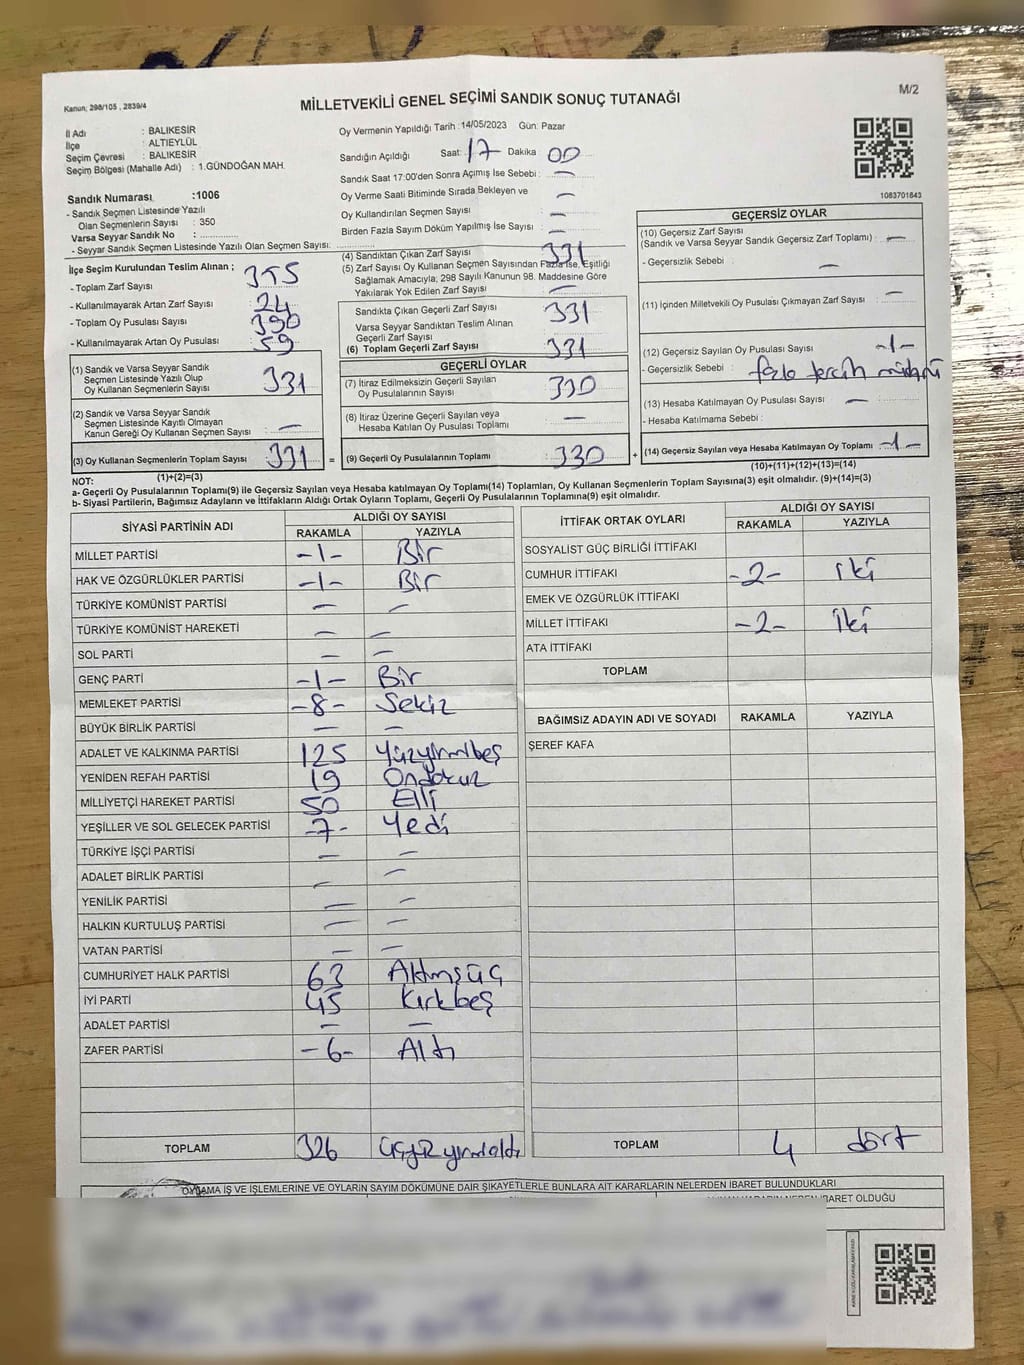 Kanun; 298/105 , 2839/4
MİLLETVEKİLİ GENEL SEÇİMİ SANDIK SONUÇ TUTANAĞI
M/2
İl Adı : BALIKESİR
İlçe : ALTIEYLÜL
Seçim Çevresi : BALIKESİR
Seçim Bölgesi (Mahalle Adı) : 1.GÜNDOĞAN MAH.
Oy Vermenin Yapıldığı Tarih :14/05/2023 Gün: Pazar
Sandığın Açıldığı Saat: 17 Dakika 00
Sandık Saat 17:00'den Sonra Açımış İse Sebebi : —
Oy Verme Saati Bitiminde Sırada Bekleyen ve —
Oy Kullandırılan Seçmen Sayısı —
Birden Fazla Sayım Döküm Yapılmış İse Sayısı : —
1083701643
Sandık Numarası :1006
- Sandık Seçmen Listesinde Yazılı
Olan Seçmenlerin Sayısı : 350
Varsa Seyyar Sandık No :
- Seyyar Sandık Seçmen Listesinde Yazılı Olan Seçmen Sayısı:
İlçe Seçim Kurulundan Teslim Alınan ;
- Toplam Zarf Sayısı 355
- Kullanılmayarak Artan Zarf Sayısı : 24
- Toplam Oy Pusulası Sayısı : 390
- Kullanılmayarak Artan Oy Pusulası 59
(1) Sandık ve Varsa Seyyar Sandık
Seçmen Listesinde Yazılı Olup
Oy Kullanan Seçmenlerin Sayısı : 331
(2) Sandık ve Varsa Seyyar Sandık
Seçmen Listesinde Kayıtlı Olmayan
Kanun Gereği Oy Kullanan Seçmen Sayısı : —
(3) Oy Kullanan Seçmenlerin Toplam Sayısı : 331
(1)+(2)=(3)
(4) Sandıktan Çıkan Zarf Sayısı : 331
(5) Zarf Sayısı Oy Kullanan Seçmen Sayısından Fazla İse, Eşitliği
Sağlamak Amacıyla, 298 Sayılı Kanunun 98. Maddesine Göre
Yakılarak Yok Edilen Zarf Sayısı : —
Sandıkta Çıkan Geçerli Zarf Sayısı : 331
Varsa Seyyar Sandıktan Teslim Alınan
Geçerli Zarf Sayısı
(6) Toplam Geçerli Zarf Sayısı : 331
GEÇERLİ OYLAR
(7) İtiraz Edilmeksizin Geçerli Sayılan
Oy Pusulalarının Sayısı : 330
(8) İtiraz Üzerine Geçerli Sayılan veya
Hesaba Katılan Oy Pusulası Toplamı : —
(9) Geçerli Oy Pusulalarının Toplamı : 330
GEÇERSİZ OYLAR
(10) Geçersiz Zarf Sayısı
(Sandık ve Varsa Seyyar Sandık Geçersiz Zarf Toplamı) : —
- Geçersizlik Sebebi : —
(11) İçinden Milletvekili Oy Pusulası Çıkmayan Zarf Sayısı : —
(12) Geçersiz Sayılan Oy Pusulası Sayısı -1-
- Geçersizlik Sebebi : fazla tercih mührü
(13) Hesaba Katılmayan Oy Pusulası Sayısı —
- Hesaba Katılmama Sebebi :
(14) Geçersiz Sayılan veya Hesaba Katılmayan Oy Toplamı -1-
(10)+(11)+(12)+(13)=(14)
NOT:
a- Geçerli Oy Pusulalarının Toplamı(9) ile Geçersiz Sayılan veya Hesaba Katılmayan Oy Toplamı(14) Toplamları, Oy Kullanan Seçmenlerin Toplam Sayısına(3) eşit olmalıdır. (9)+(14)=(3)
b- Siyasi Partilerin, Bağımsız Adayların ve İttifakların Aldığı Ortak Oyların Toplamı, Geçerli Oy Pusulalarının Toplamına(9) eşit olmalıdır.
SİYASİ PARTİNİN ADI ALDIĞI OY SAYISI
RAKAMLA YAZIYLA
MİLLET PARTİSİ -1- Bir
HAK VE ÖZGÜRLÜKLER PARTİSİ -1- Bir
TÜRKİYE KOMÜNİST PARTİSİ — —
TÜRKİYE KOMÜNİST HAREKETİ — —
SOL PARTİ — —
GENÇ PARTİ -1- Bir
MEMLEKET PARTİSİ -8- Sekiz
BÜYÜK BİRLİK PARTİSİ — —
ADALET VE KALKINMA PARTİSİ 125 Yüzyirmibeş
YENİDEN REFAH PARTİSİ 19 Ondokuz
MİLLİYETÇİ HAREKET PARTİSİ 50 Elli
YEŞİLLER VE SOL GELECEK PARTİSİ -7- Yedi
TÜRKİYE İŞÇİ PARTİSİ — —
ADALET BİRLİK PARTİSİ — —
YENİLİK PARTİSİ — —
HALKIN KURTULUŞ PARTİSİ — —
VATAN PARTİSİ — —
CUMHURİYET HALK PARTİSİ 63 Altmışüç
İYİ PARTİ 45 Kırkbeş
ADALET PARTİSİ — —
ZAFER PARTİSİ -6- Altı
TOPLAM 326 üçyüzyirmialtı
İTTİFAK ORTAK OYLARI ALDIĞI OY SAYISI
RAKAMLA YAZIYLA
SOSYALİST GÜÇ BİRLİĞİ İTTİFAKI
CUMHUR İTTİFAKI -2- iki
EMEK VE ÖZGÜRLÜK İTTİFAKI
MİLLET İTTİFAKI -2- iki
ATA İTTİFAKI
TOPLAM
BAĞIMSIZ ADAYIN ADI VE SOYADI RAKAMLA YAZIYLA
ŞEREF KAFA
TOPLAM 4 dört
OYLAMA İŞ VE İŞLEMLERİNE VE OYLARIN SAYIM DÖKÜMÜNE DAİR ŞİKAYETLERLE BUNLARA AİT KARARLARIN NELERDEN İBARET BULUNDUKLARI
İBARET OLDUĞU